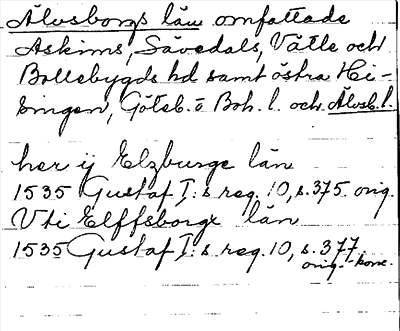 Älvsborgs län omfattade
Askims, Sävedals, Vätle och
Bollebygds hd samt östra Hi-
singen, Göteb. o Boh. l. och Älvsb. l.
her ij Elzburge län
1535 Gustaf I:s reg. 10, s. 375. orig.
Vti Elffsborgx län
1535 Gustaf I:s reg. 10, s. 377.
orig.-konc.